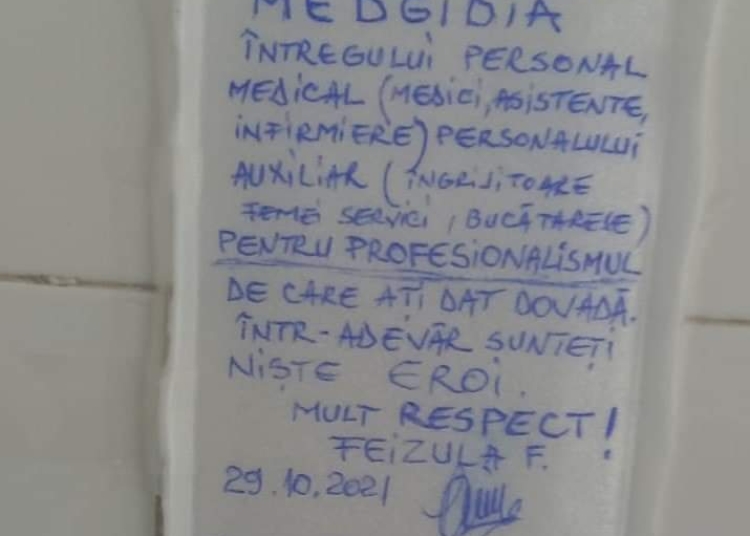 MEDGIDIA
ÎNTREGULUI PERSONAL
MEDICAL (MEDICI, ASISTENTE,
INFIRMIERE) PERSONALULUI
AUXILIAR (ÎNGRIJITOARE
FEMEI SERVICI, BUCĂTARESE)
PENTRU PROFESIONALISMUL
DE CARE AȚI DAT DOVADĂ.
ÎNTR-ADEVĂR SUNTEȚI
NIȘTE EROI.
MULT RESPECT!
FEIZULA F.
29.10.2021